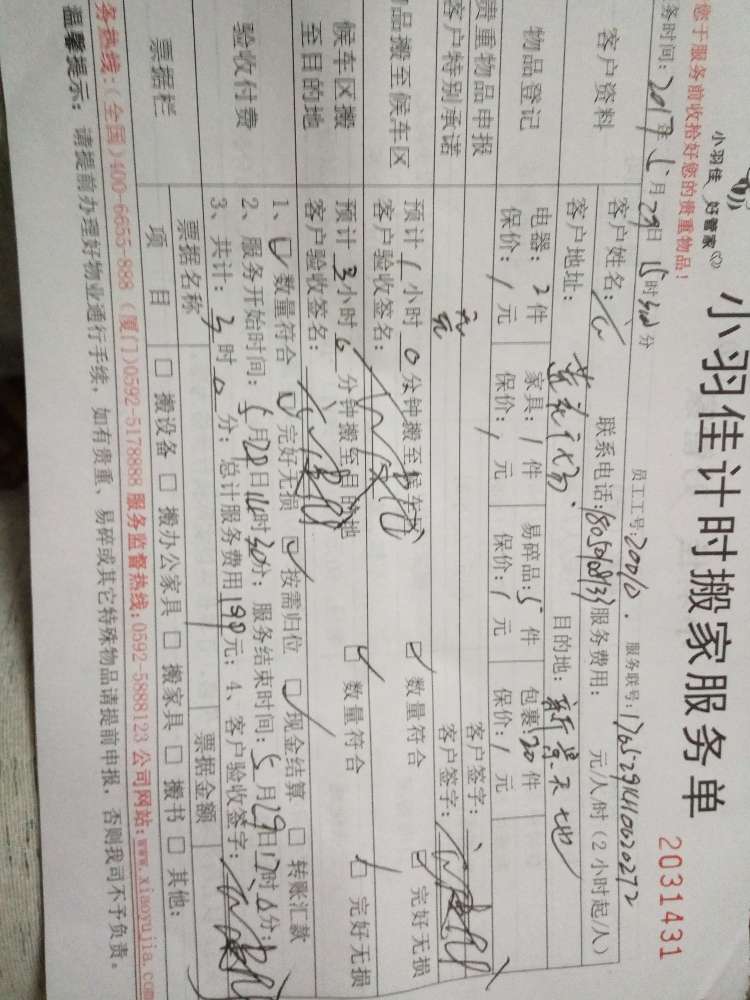 小羽佳 好管家
小羽佳计时搬家服务单
2031431
您于服务前收拾好您的贵重物品!
员工工号: 20010 服务联号:
务时间: 2017年5月29日 15时30分
客户资料 客户姓名: 联系电话: 服务费用: 元/人/时(2小时起/人)
客户地址: 目的地: 新景天地
物品登记 电器: 2件 家具: 1件 易碎品: 5件 包裹: 20件
保价: / 元 保价: / 元 保价: / 元 保价: / 元
贵重物品申报 无 客户签字:
客户特别承诺 无 客户签字:
品搬至候车区 预计 1 小时 0 分钟搬至候车区 ☑ 数量符合 ☑ 完好无损
客户验收签名:
候车区搬至目的地 预计 3 小时 0 分钟搬至目的地 ☑ 数量符合 ☑ 完好无损
客户验收签名:
验收付费 1、☑ 数量符合 ☑ 完好无损 ☑ 按需归位 ☑ 现金结算 □ 转账汇款
2、服务开始时间: 5月28日14时30分; 服务结束时间: 5月29日17时0分;
3、共计: 3 时 0 分; 总计服务费用 190 元; 4、客户验收签字:
票据栏 票据名称 票据金额
项目 □ 搬设备 □ 搬办公家具 □ 搬家具 □ 搬书 □ 其他:
务热线:(全国)400-6655-888 (厦门)0592-5178888 服务监督热线:0592-5888123 公司网站:www.xiaoyujia.com
温馨提示: 请提前办理好物业通行手续, 如有贵重、易碎或其它特殊物品请提前申报, 否则我司不予负责。